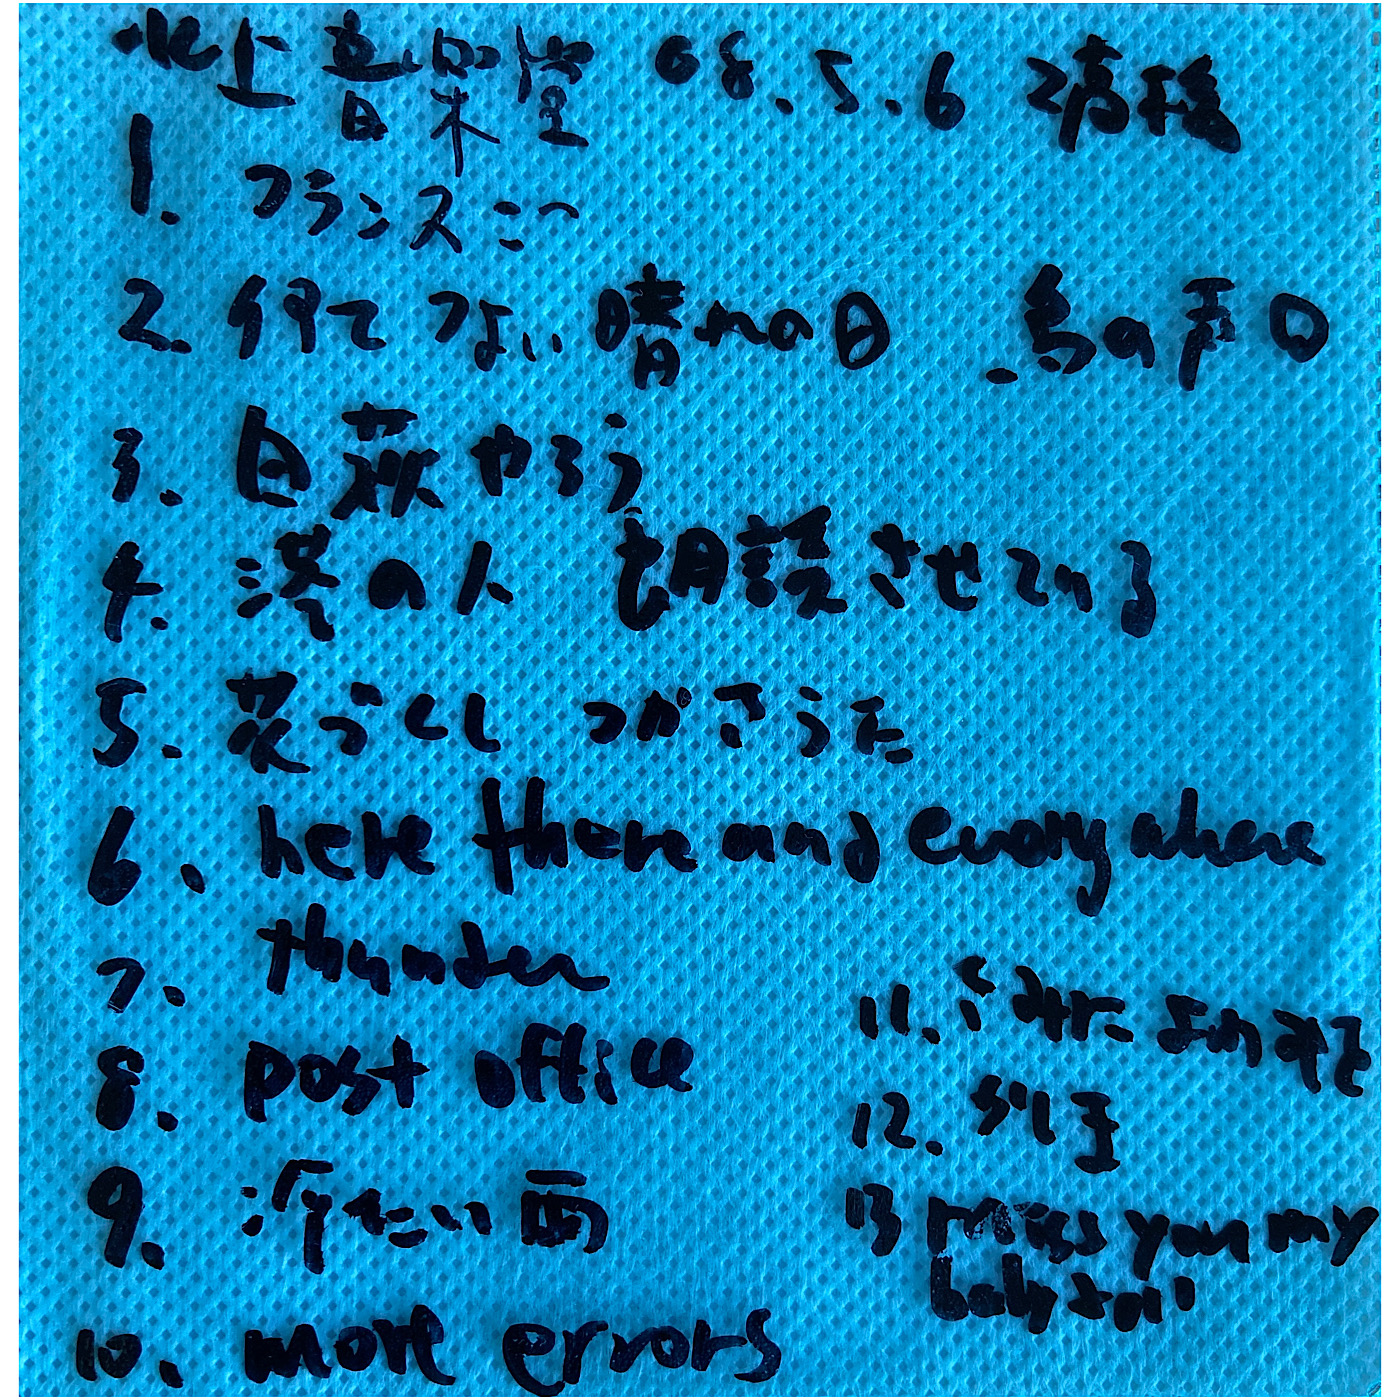 水上音楽堂 08.5.6 演奏後
1. フランスごっ
2. 似てつない 晴れの日 . 鳥の声 ロ
3. 白萩やろう
4. 港の人 朗読させている
5. 花づくし つかさうた
6. here there and everywhere
7. thunder
8. post office
9. 冷たい雨
10. more errors
11.
12.
13 miss you my
baby